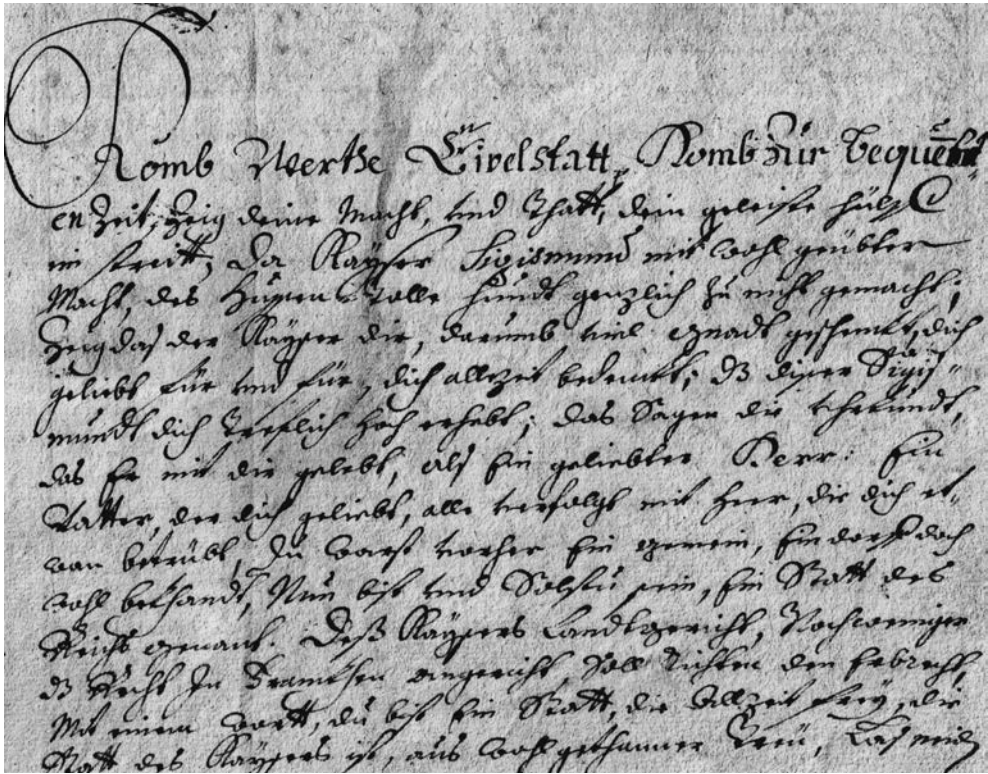 Komb Werthe Eivelstatt, Komb zur bequemen
en Zeit, Zeig deine Macht, und Thatt, dein geleiste hülff
im streitt, Da Kayser Sigismund mit wohl geübter
Macht, des Hussen tolle hundt genzlich zu nicht gemacht;
Zeig das der Kaysser dir, darumb viel gnadt geschenckt, dich
geliebt für und für, dich allzeit bedenckt; dz diser Sigis-
mundt dich treflich hoch erhebt; das Sagen die uhrkundt,
das Er mit dir gelebt, als Ein geliebter Herr: Ein
Vatter, der dich geliebt, alle verfolgt mit heer, die dich et-
wan betrübt, Du warst vorher Ein gemein, Ein dorff doch
wohl bekandt, Nun bist und Solstu sein, Ein Statt des
Reichs genant. Deß Kaysers Landtgericht, Noch weniger
dz Recht In Francken angericht, Soll Richten den Erbrecht,
Mit einem wortt, du bist Ein Statt, die Allzeit frey, die
Statt des Kaysers ist, aus wohl gethanner Treu, Las mich